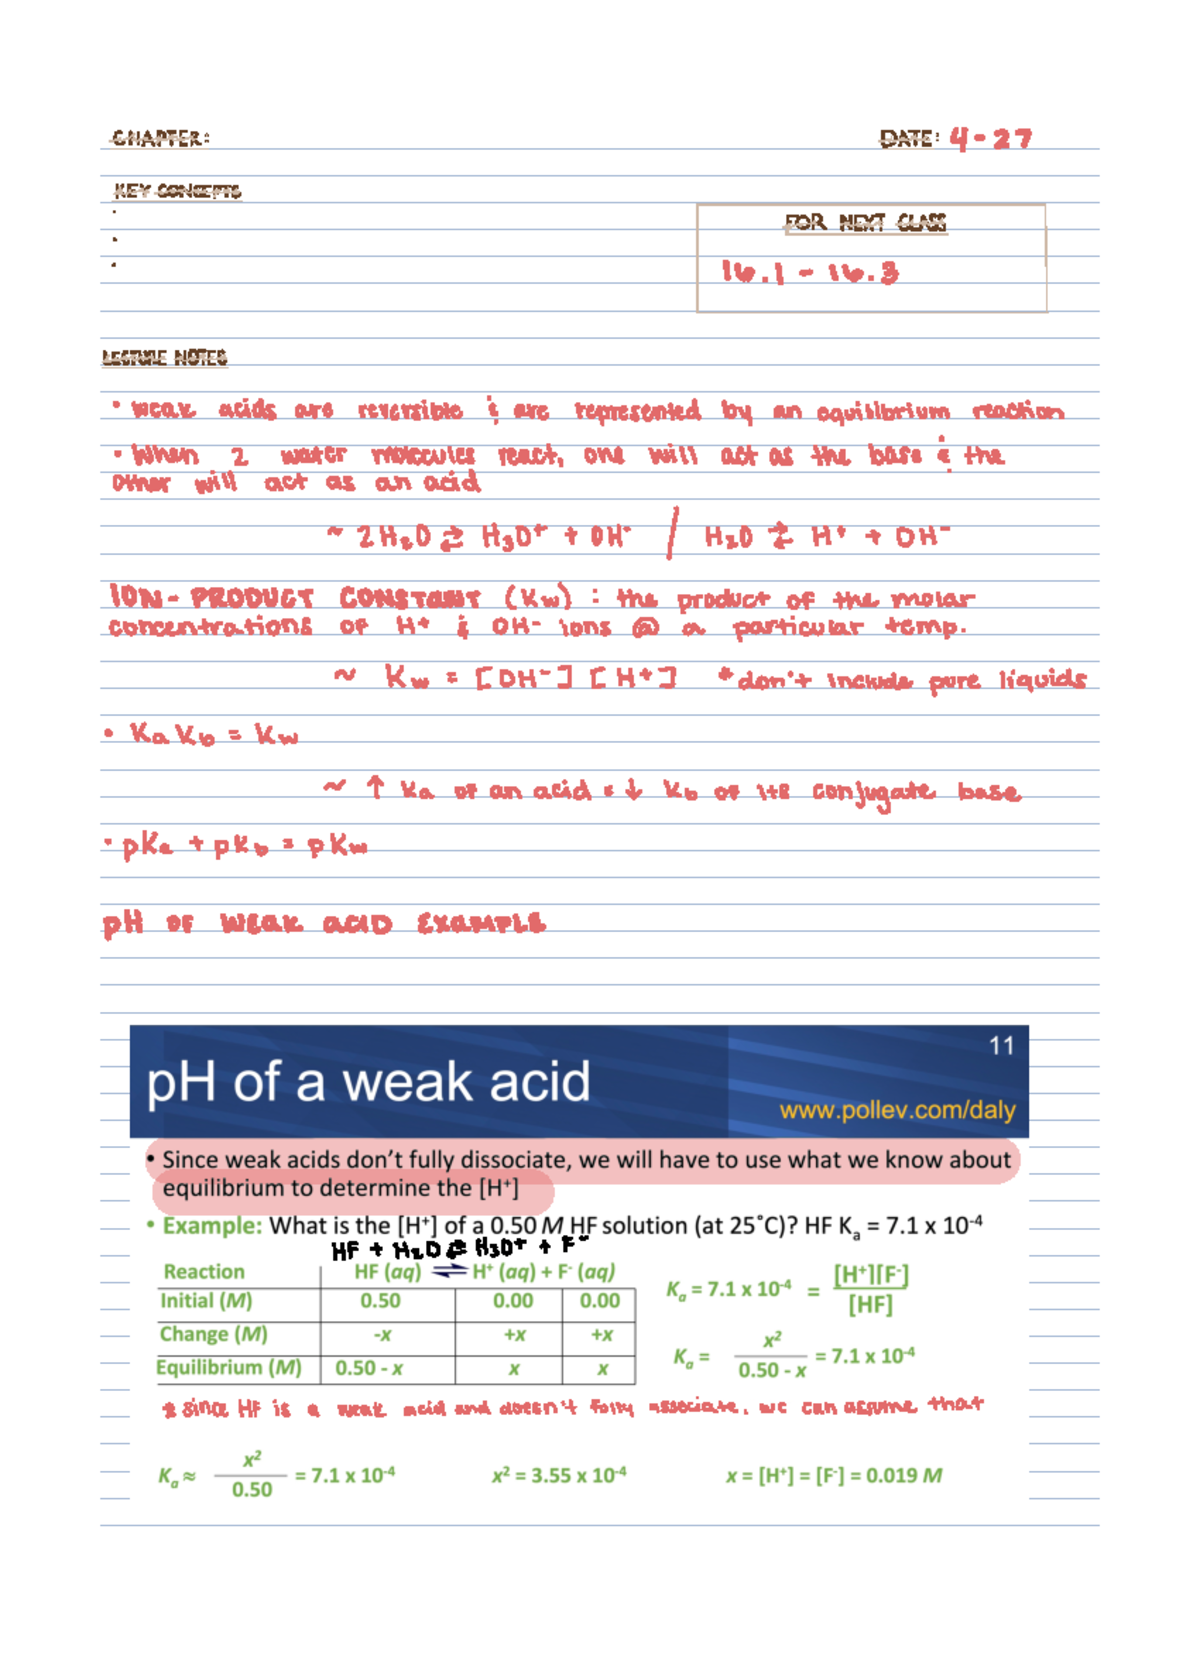 CHAPTER:
DATE: 4-27
KEY CONCEPTS
FOR NEXT CLASS
16.1 - 16.3
LECTURE NOTES
• weak acids are reversible & are represented by an equilibrium reaction
• When 2 water molecules react, one will act as the base & the
other will act as an acid
~ 2H₂O ⇄ H₃O⁺ + OH⁻ / H₂O ⇄ H⁺ + OH⁻
ION-PRODUCT CONSTANT (Kw) : the product of the molar
concentrations OF H⁺ & OH⁻ ions @ a particular temp.
~ Kw = [OH⁻] [H⁺] *don't include pure liquids
• Ka Kb = Kw
~ ↑ Ka of an acid = ↓ Kb of its conjugate base
• pKa + pKb = pKw
pH OF WEAK ACID EXAMPLE
11
pH of a weak acid
www.pollev.com/daly
• Since weak acids don't fully dissociate, we will have to use what we know about
equilibrium to determine the [H⁺]
• Example: What is the [H⁺] of a 0.50 M HF solution (at 25˚C)? HF Kₐ = 7.1 x 10⁻⁴
HF + H₂O ⇄ H₃O⁺ + F⁻
Reaction HF (aq) ⇌ H⁺ (aq) + F⁻ (aq)
Initial (M) 0.50 0.00 0.00
Change (M) -x +x +x
Equilibrium (M) 0.50 - x x x
Kₐ = 7.1 x 10⁻⁴ = [H⁺][F⁻] / [HF]
Kₐ = x² / 0.50 - x = 7.1 x 10⁻⁴
* since HF is a weak acid and doesn't fully associate, we can assume that
Kₐ ≈ x² / 0.50 = 7.1 x 10⁻⁴ x² = 3.55 x 10⁻⁴ x = [H⁺] = [F⁻] = 0.019 M